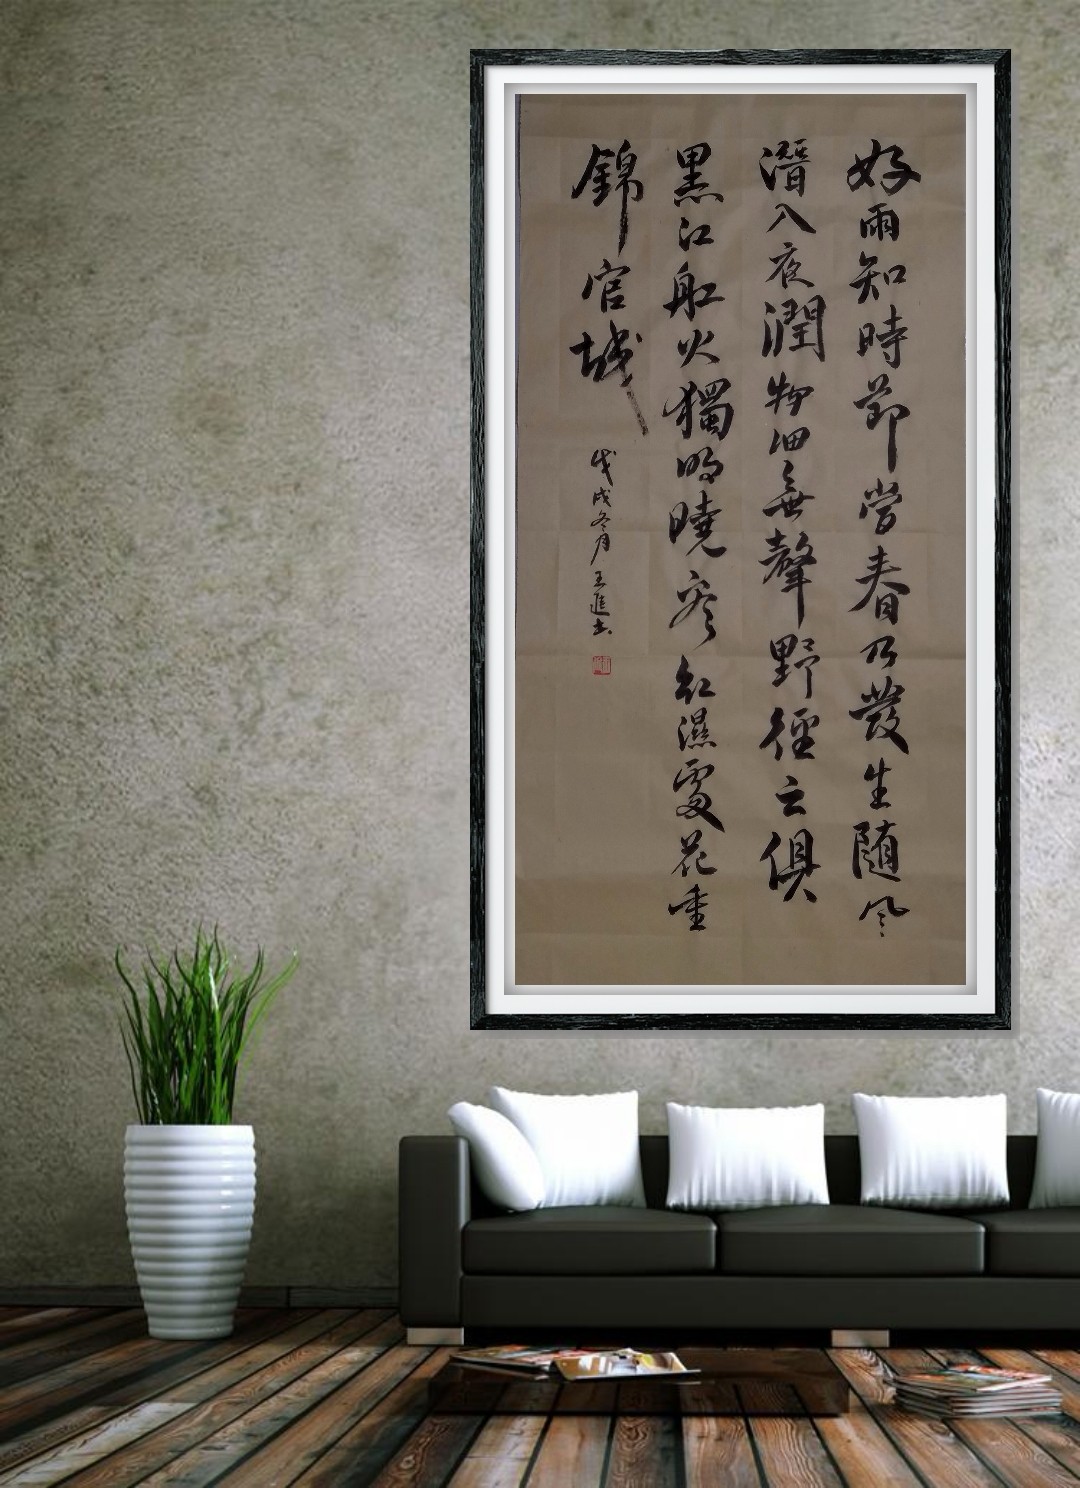 好雨知時節當春乃發生随風
潛入夜潤物細無聲野徑云俱
黑江船火獨明曉看紅濕處花重
錦官城
戊戌冬月王進书